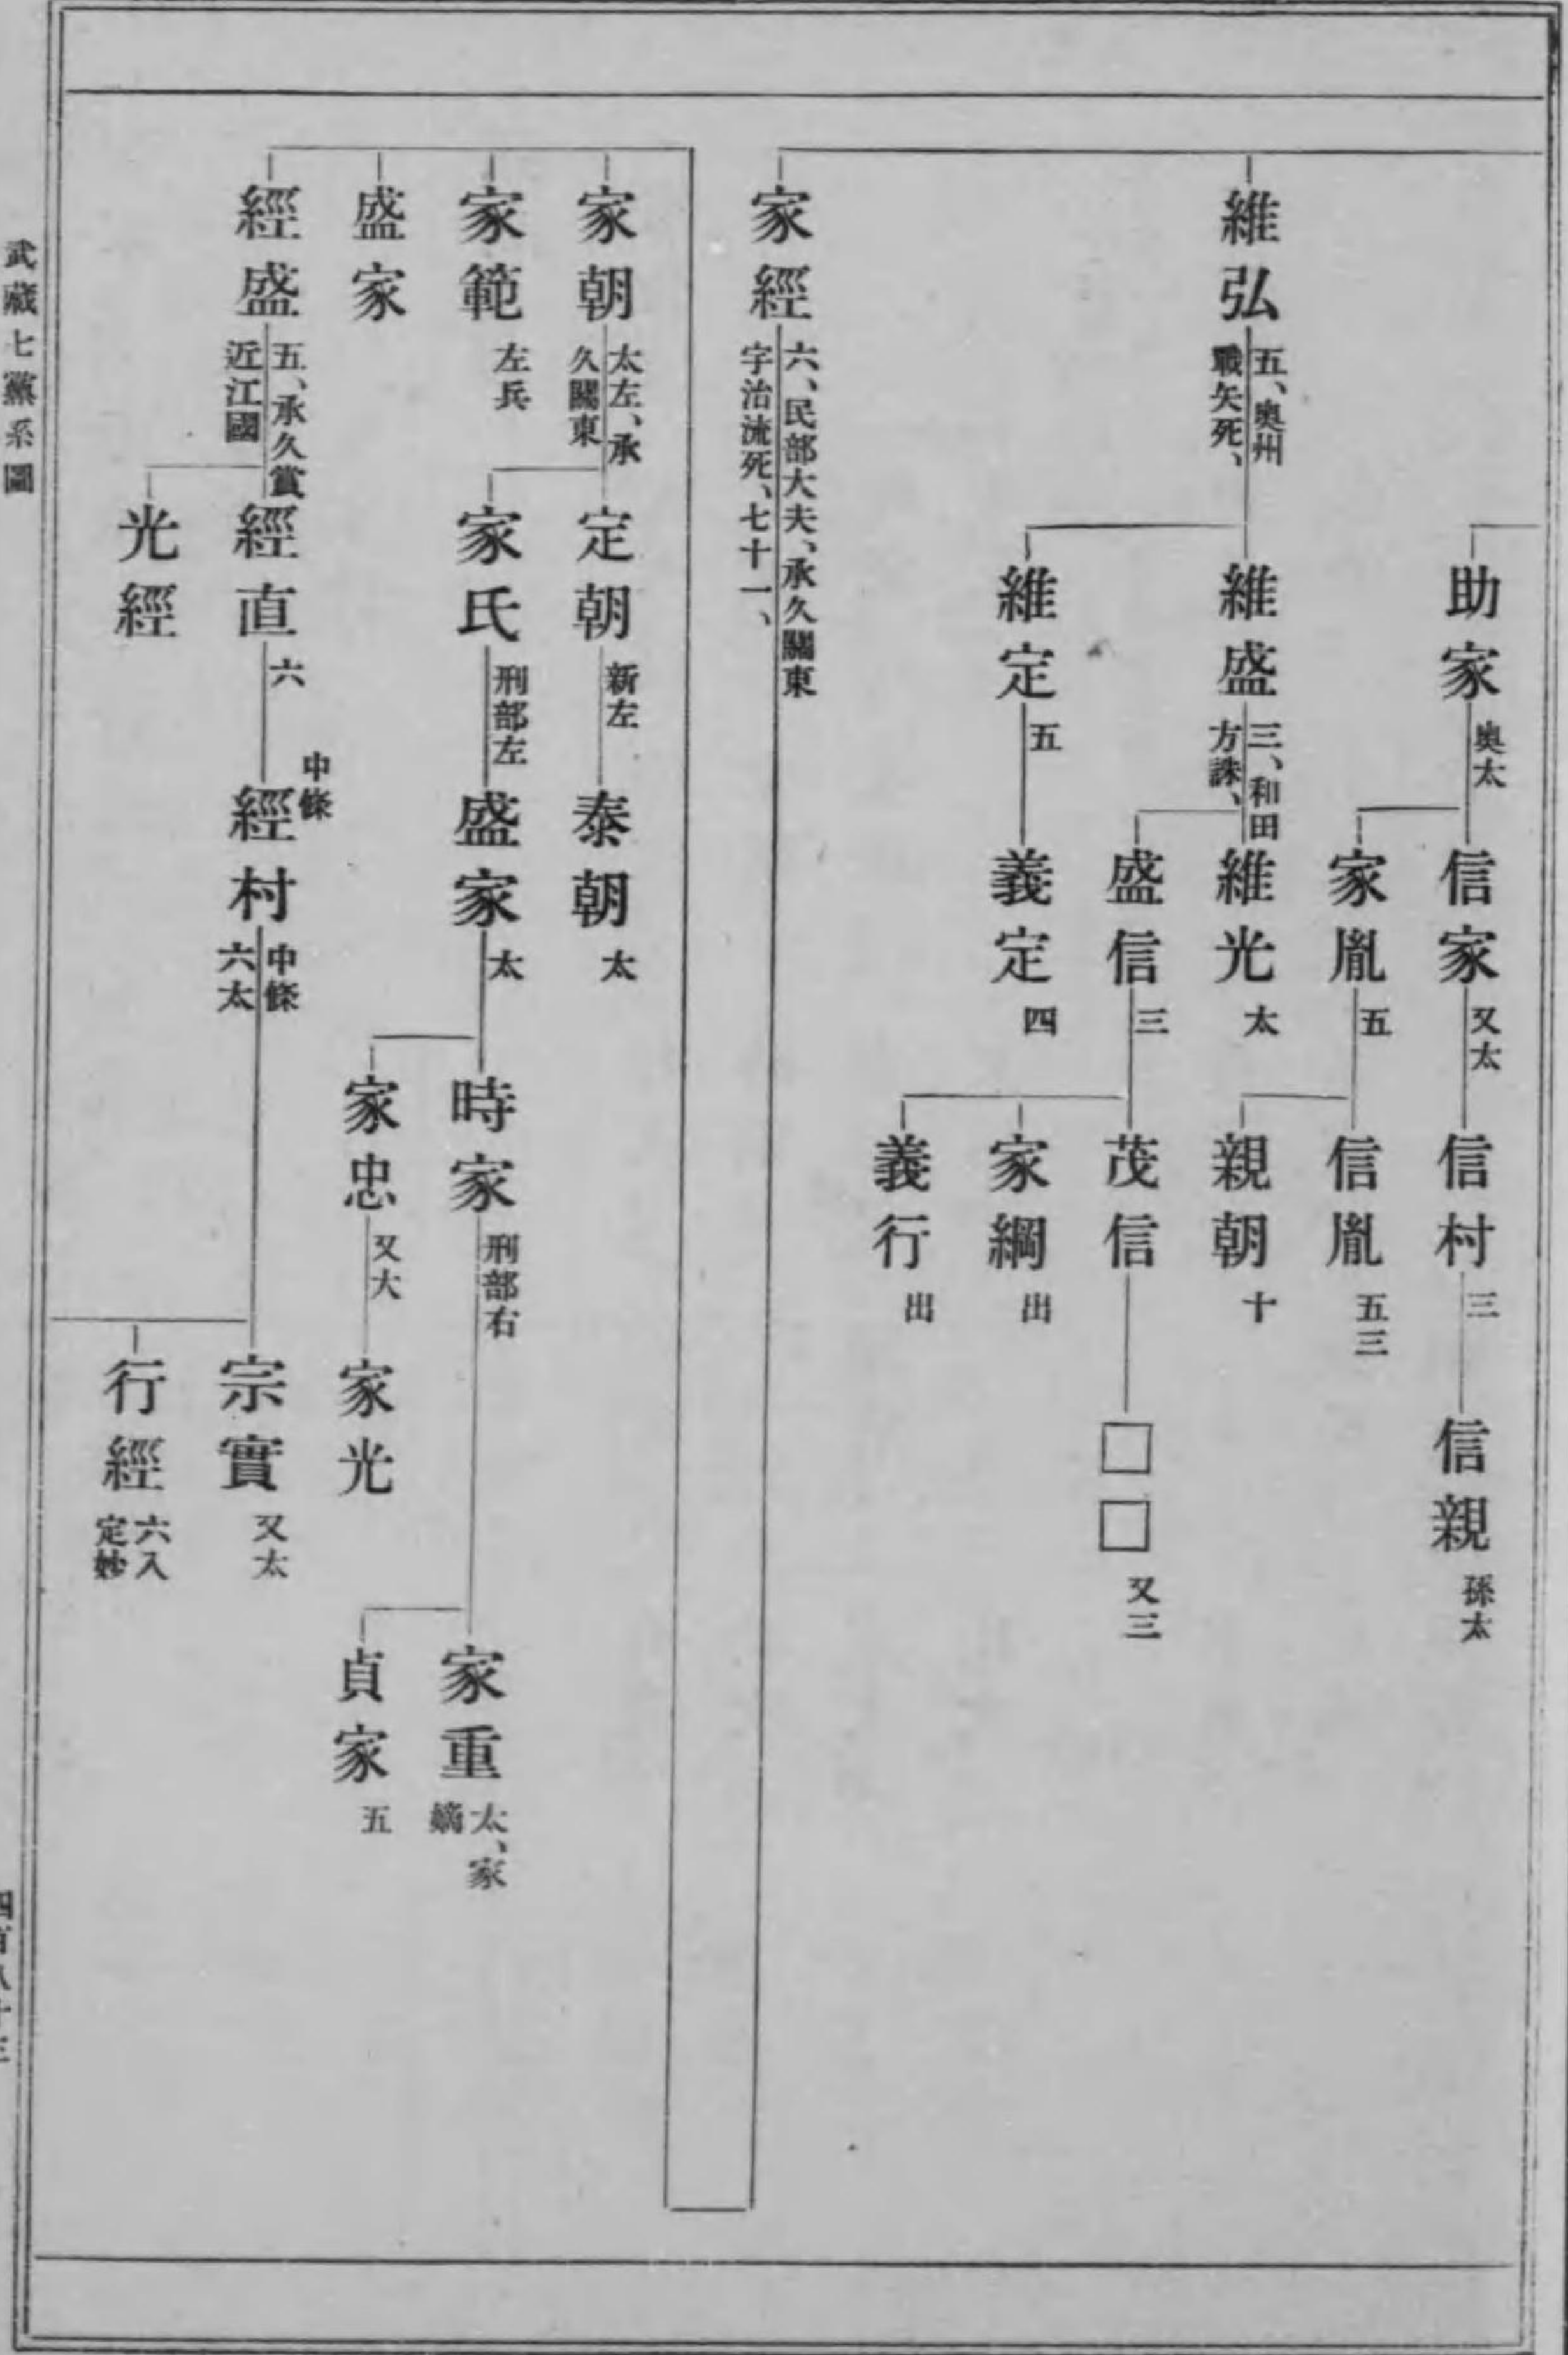 助家 奥太
信家 又太
信村 三
信親 孫太
家胤 五
信胤 五三
親朝 十
維弘 五、奥州
戰矢死、
維盛 三、和田
方誅、
維光 太
盛信 三
茂信
□□ 又三
家綱 出
義行 出
維定 五
義定 四
家經 六、民部大夫、承久關東
宇治流死、七十一、
家朝 太左、承
久關東
定朝 新左
泰朝 太
家氏 刑部左
盛家 太
時家 刑部右
家重 太、家
嫡
貞家 五
家忠 又大
家光
家範 左兵
盛家
經盛 五、承久賞
近江國
經直 六
中條
經村 中條
六太
宗實 又太
行經 六入
定妙
光經
武藏七黨系圖